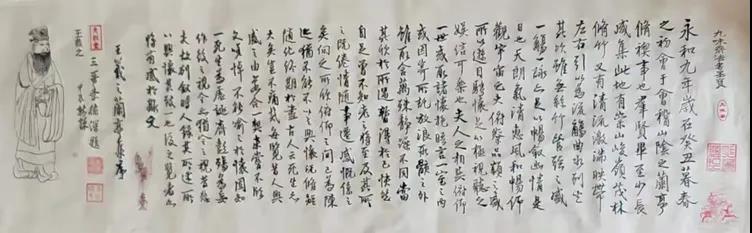 永和九年歲在癸丑暮春
之初會于會稽山陰之蘭亭
脩禊事也羣賢畢至少長
咸集此地有崇山峻嶺茂林
脩竹又有清流激湍映帶
左右引以為流觴曲水列坐
其次雖無絲竹管弦之盛
一觴一詠亦足以暢敘幽情是
日也天朗氣清惠風和暢仰
觀宇宙之大俯察品類之盛
所以遊目騁懷足以極視聽之
娛信可樂也夫人之相與俯仰
一世或取諸懷抱晤言一室之內
或因寄所託放浪形骸之外
雖趣舍萬殊靜躁不同當
其欣於所遇暫得於己快然
自足曾不知老之將至及其所
之既倦情隨事遷感慨係之
矣向之所欣俯仰之間已為陳
迹猶不能不以之興懷況脩短
隨化終期於盡古人云死生亦
大矣豈不痛哉每覽昔人興
感之由若合一契未嘗不臨
文嗟悼不能喻之於懷固知
一死生為虛誕齊彭殤為妄
作後之視今亦猶今之視昔悲
夫故列敘時人錄其所述所
以興懷其致一也後之覽者亦
將有感於斯文
王羲之蘭亭集序
王羲之